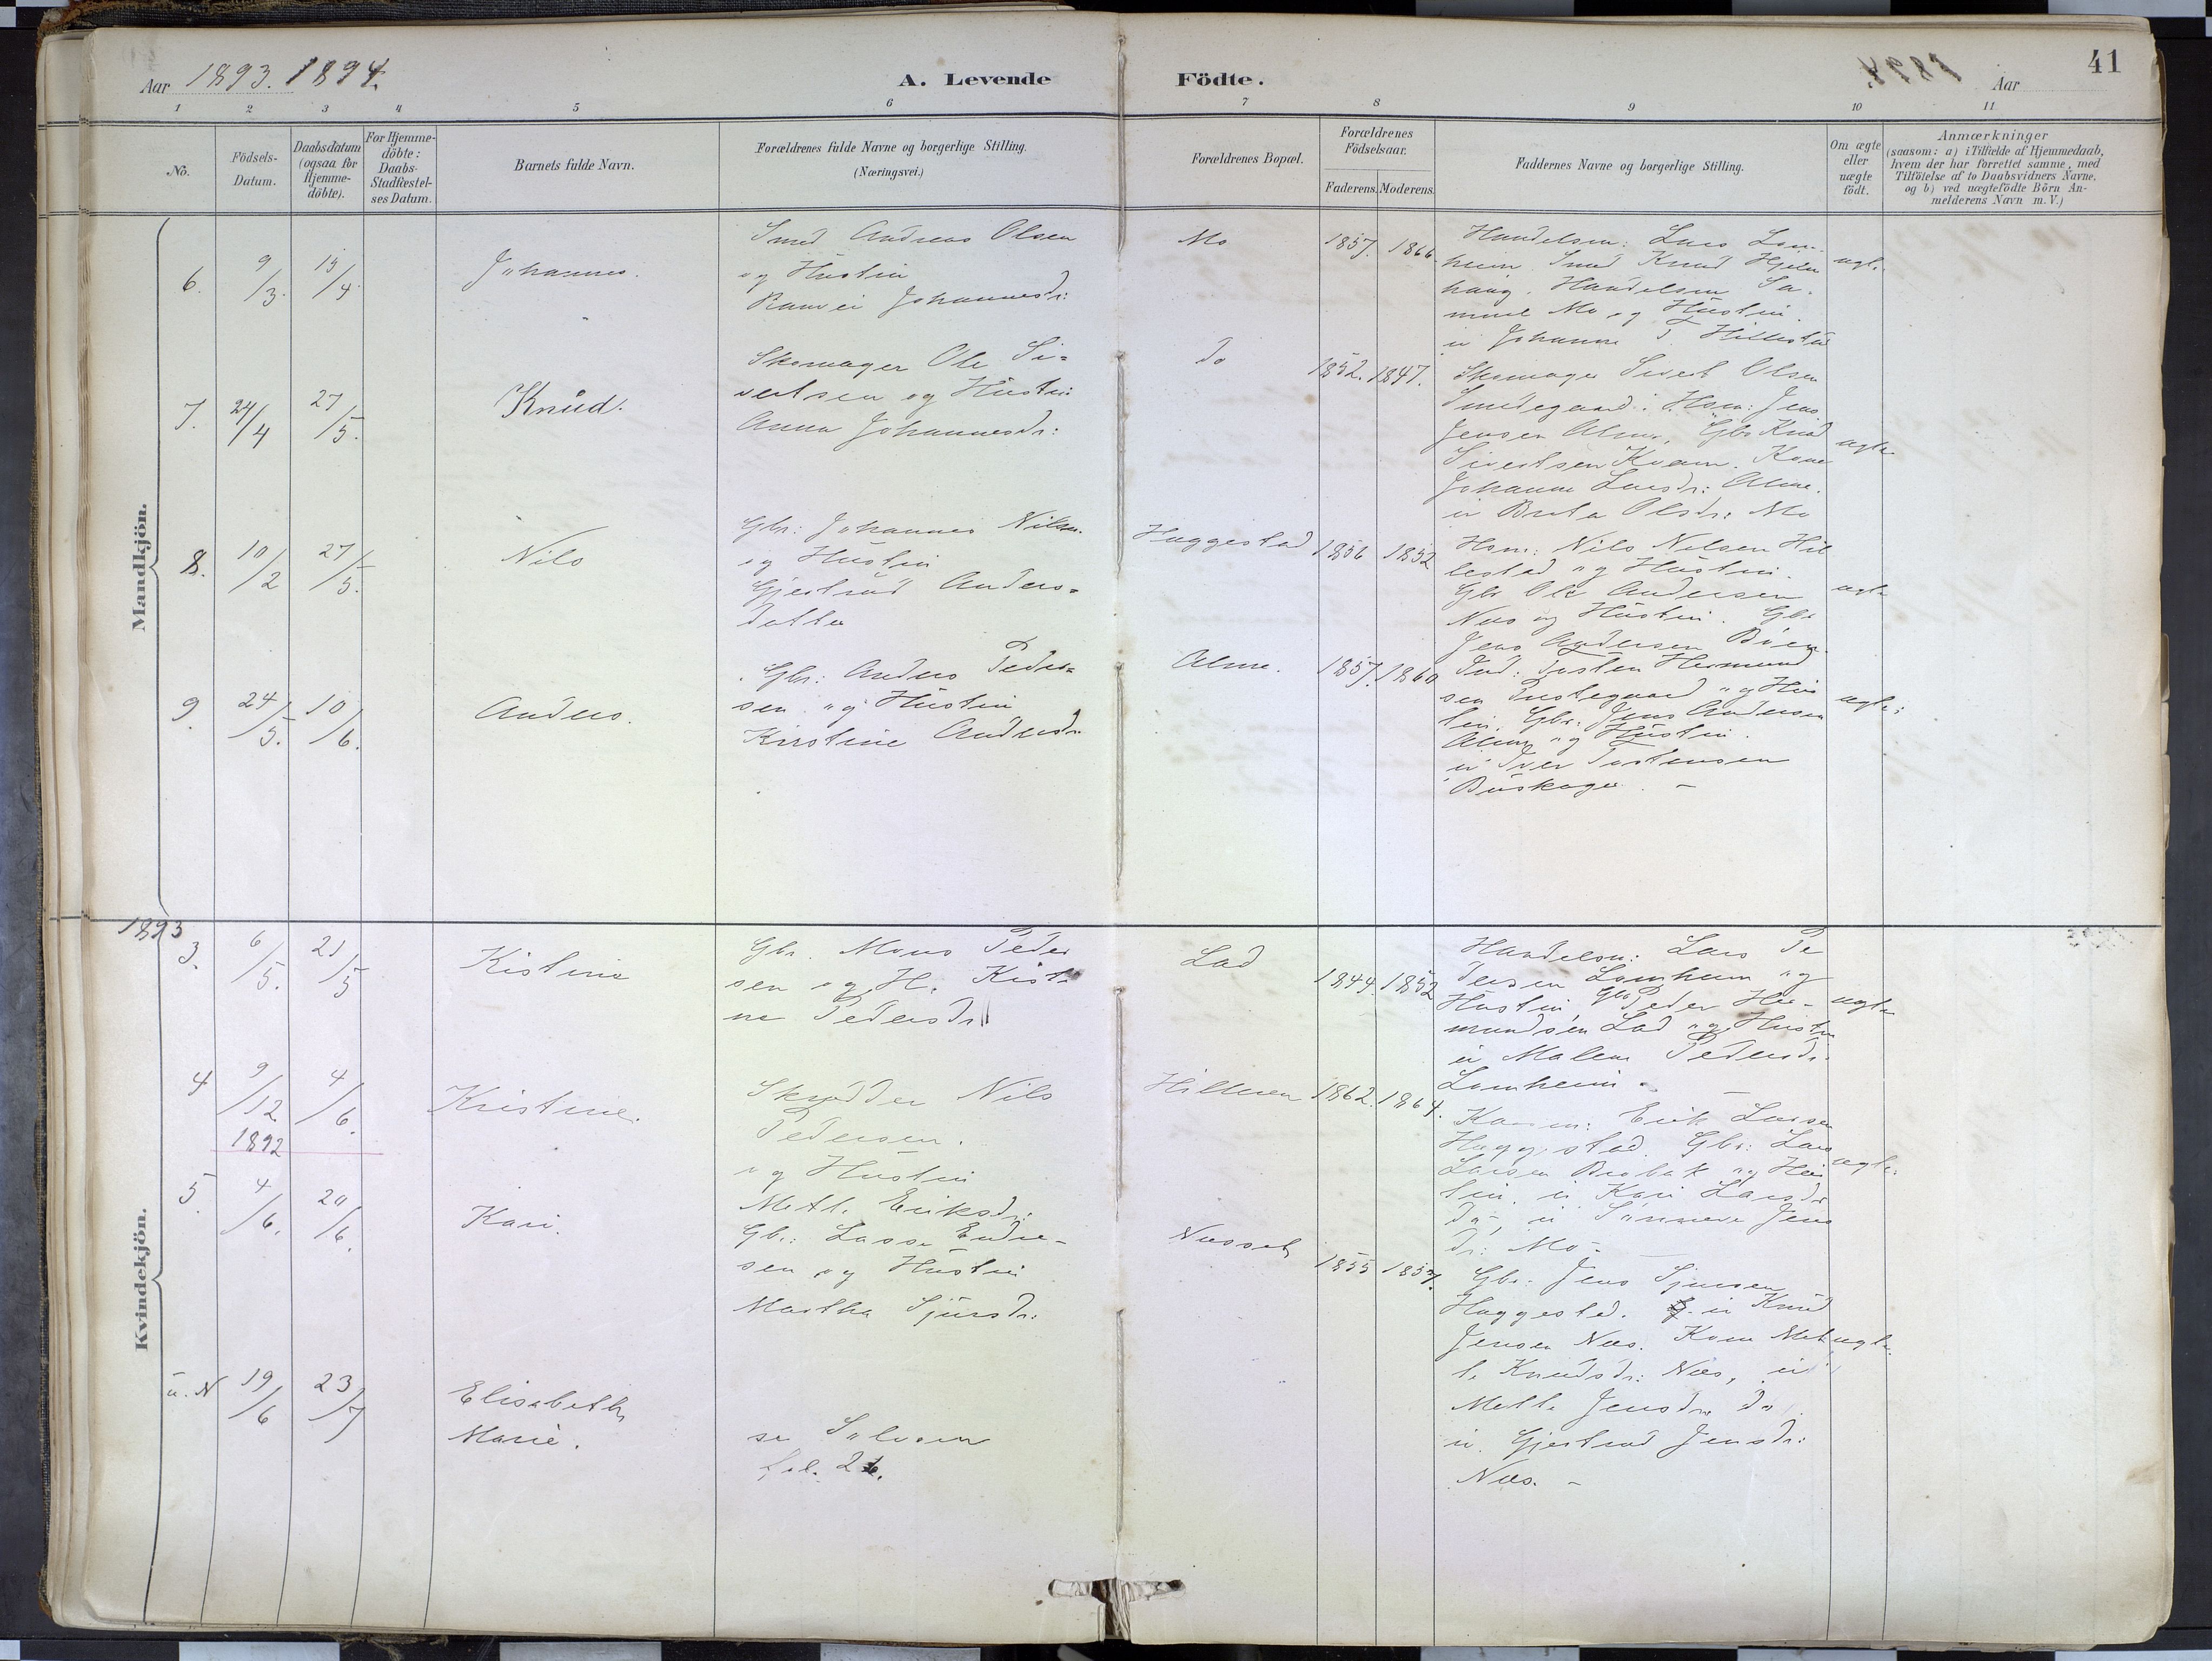 Aar 1893. 1894.
A. Levende Födte.
Aar
41
1 2 3 4 5 6 7 8 9 10 11
No.
Födsels-
Datum.
Daabsdatum
(ogsaa for
Hjemme-
döbte).
For Hjemme-
döbte:
Daabs-
Stadfæstel-
ses Datum.
Barnets fulde Navn.
Forældrenes fulde Navne og borgerlige Stilling.
(Næringsvei.)
Forældrenes Bopæl.
Forældrenes
Födselsaar.
Faderens. Moderens.
Faddernes Navne og borgerlige Stilling.
Om ægte
eller
uægte
födt.
Anmærkninger
(saasom: a) i Tilfælde af Hjemmedaab,
hvem der har forrettet samme, med
Tilföielse af to Daabsvidners Navne.
og b) ved uægtefödte Börn An-
melderens Navn m.V.)
Mandkjön.
6. 9/3. 15/4. Johannes.
Smed Andreas Olsen
og Hustru
Johannesdr:
Mo 1857. 1866.
Handelsm: Lars Lom-
heim. Smed Knud Hjelm
haug. Handelsm Sa-
muel Mo og Hustru.
u Johanne T. Hillestad
ægte
7. 24/4 27/5. Knud.
Skomager Ole Si-
vertsen og Hustru
Anna Johannesdr:
do 1852. 1847.
Skomager Sivert Olsen
Smedegaard. Hsm: Jens
Jensen Alme. Gbr Knud
Sivertsen Kvam. Kone
Johanne Larsdr: Alme.
u Brita Olsdr: Mo
ægte
8. 10/2 27/5. Nils
Gbr: Johannes Nilsen.
og Hustru
Gjertrud Anders-
datter
Haggestad 1856 1852
Hsm: Nils Nilsen Hil
lestad og Hustru.
Gbr Ole Andersen
Næs og Hustru. Gbr
Jens Andersen Böen.
ægte
9. 24/5. 10/6. Anders.
Gbr: Anders Peder-
sen og Hustru
Kirstine Andersdr.
Alme. 1857. 1860
Ind: Tosten Hermund
sen Prestegaard og Hus
tru. Gbr: Jens Andersen
Alme og Hustru.
u Iver Tostensen
Buskager. -
ægte:
Kvindekjön.
1893
3. 6/5. 21/5 Kistine
Gbr. Mons Peder
sen og H. Kisti
ne Pedersdr
Lad 1844. 1852
Handelsm: Lars Pe
dersen Lomheim og
Hustru Gbr Peder Her-
mundsen Lad og Hustru
u Malene Pedersdr.
Lomheim.
ægte
4 9/12 1892 4/6. Kristine.
Skrædder Nils
Pedersen.
og Hustru
Mette Eriksdr:
Hilleren 1862. 1864.
Erik Larsen
Haggestad. Gbr: Lars
Larsen og Hus
tru. u Kari Larsdr
do, u Sönneve Jens
dr: Mo-
ægte.
5. 4/6. 20/6. Kari.
Gbr: Lasse Endre-
sen og Hustru
Martha Sjursdr:
1855 1857.
Gbr: Jens Sjursen
Haggestad. u Knud
Jensen Næs. Kone Met
te Knudsdr: Næs, u
Mette Jensdr. do
u. Gjertrud Jensdr:
Næs. -
ægte.
u. N 19/6 23/7
Elisabeth
Marie.
se Solvorn
fol. 26.